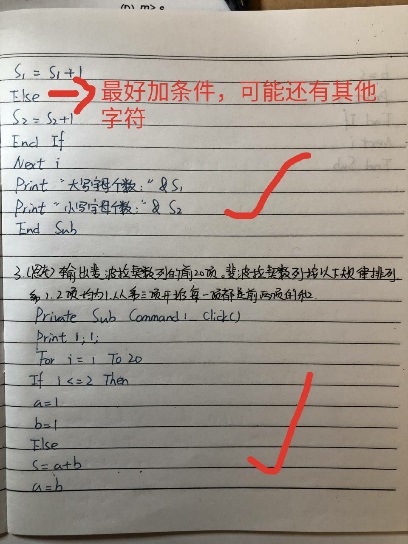 S₁ = S₁+1
Else 最好加条件，可能还有其他字符
S₂ = S₂+1
End If
Next i
Print "大写字母个数:" & S₁
Print "小写字母个数:" & S₂
End Sub
输出斐波拉契数列的前20项。斐波拉契数列按以下规律排列
第1,2项均为1,从第三项开始每一项都是前两项的和.
Private Sub Command1_Click()
Print 1; 1;
For i = 1 To 20
If i <= 2 Then
a=1
b=1
Else
s=a+b
a=b